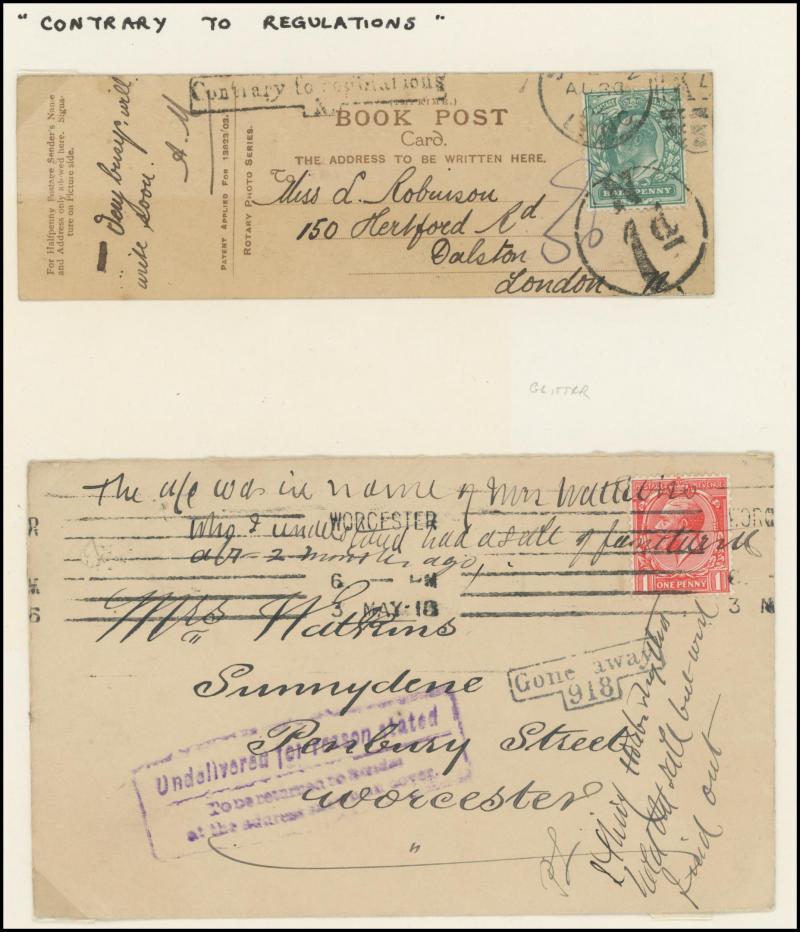 "CONTRARY TO REGULATIONS"
For Halfpenny Postage Sender's Name
and Address only allowed here. Signa-
ture on Picture side.
Very busy, will
write soon.
A. M
PATENT APPLIED FOR 13823/03.
ROTARY PHOTO SERIES.
Contrary to regulations
BOOK POST
Card.
THE ADDRESS TO BE WRITTEN HERE.
Miss L. Robinson
150 Hertford Rd
Dalston
London N.
AU 23
HALFPENNY
1D
GLITTER
The a/c was in name of Mrs Watkins
who I understand had a sale of furniture
abt 2 months ago,
WORCESTER
6 - PM
3 MAY 18
POSTAGE REVENUE
ONE PENNY
Mrs Watkins
Sunnydene
Penbury Street
Worcester
"
Gone away
918
Undelivered for reason stated
To be returned to Sender
at the address shewn on cover.
find out